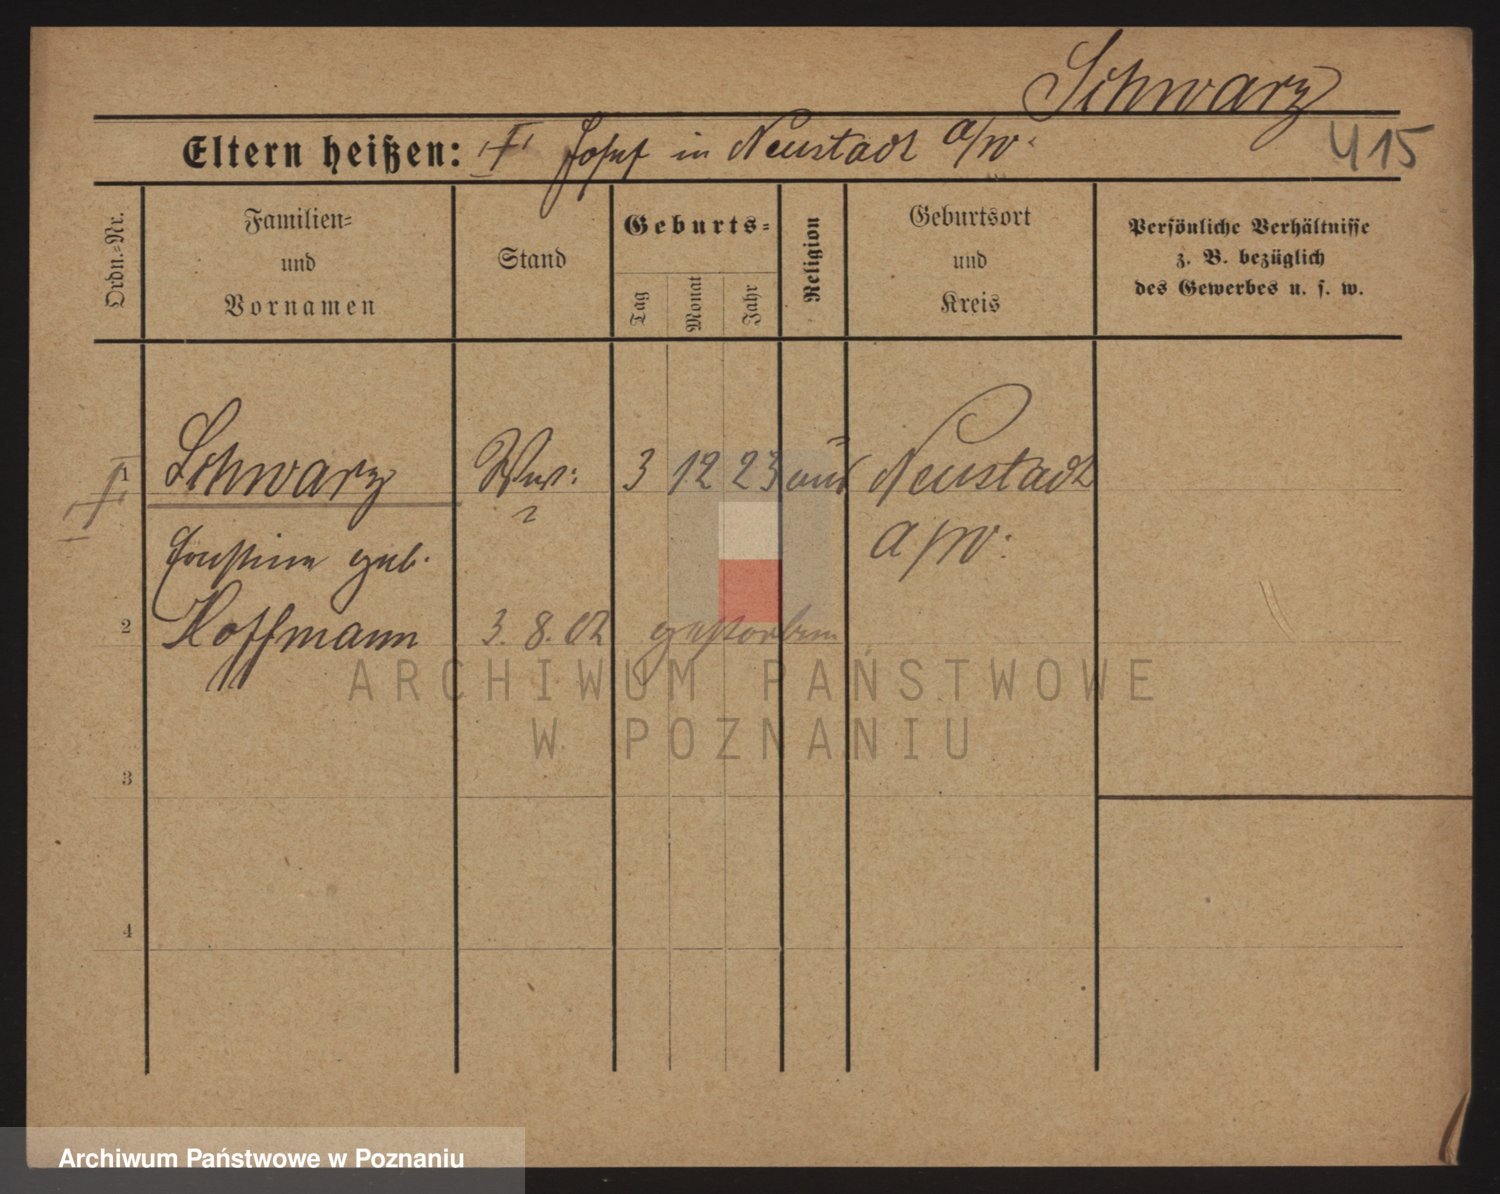 Schwarz
Eltern heißen: Josef in Neustadt a/W.
415
Ordn.=Nr.
Familien=
und
Vornamen
Stand
Geburts=
Tag
Monat
Jahr
Religion
Geburtsort
und
Kreis
Persönliche Verhältnisse
z. B. bezüglich
des Gewerbes u. s. w.
1 Schwarz Ww: 3 12 23 Neustadt
geb. a/W:
2 Hoffmann 3. 8. 02 gestorben
3
4
ARCHIWUM PAŃSTWOWE
W POZNANIU
Archiwum Państwowe w Poznaniu